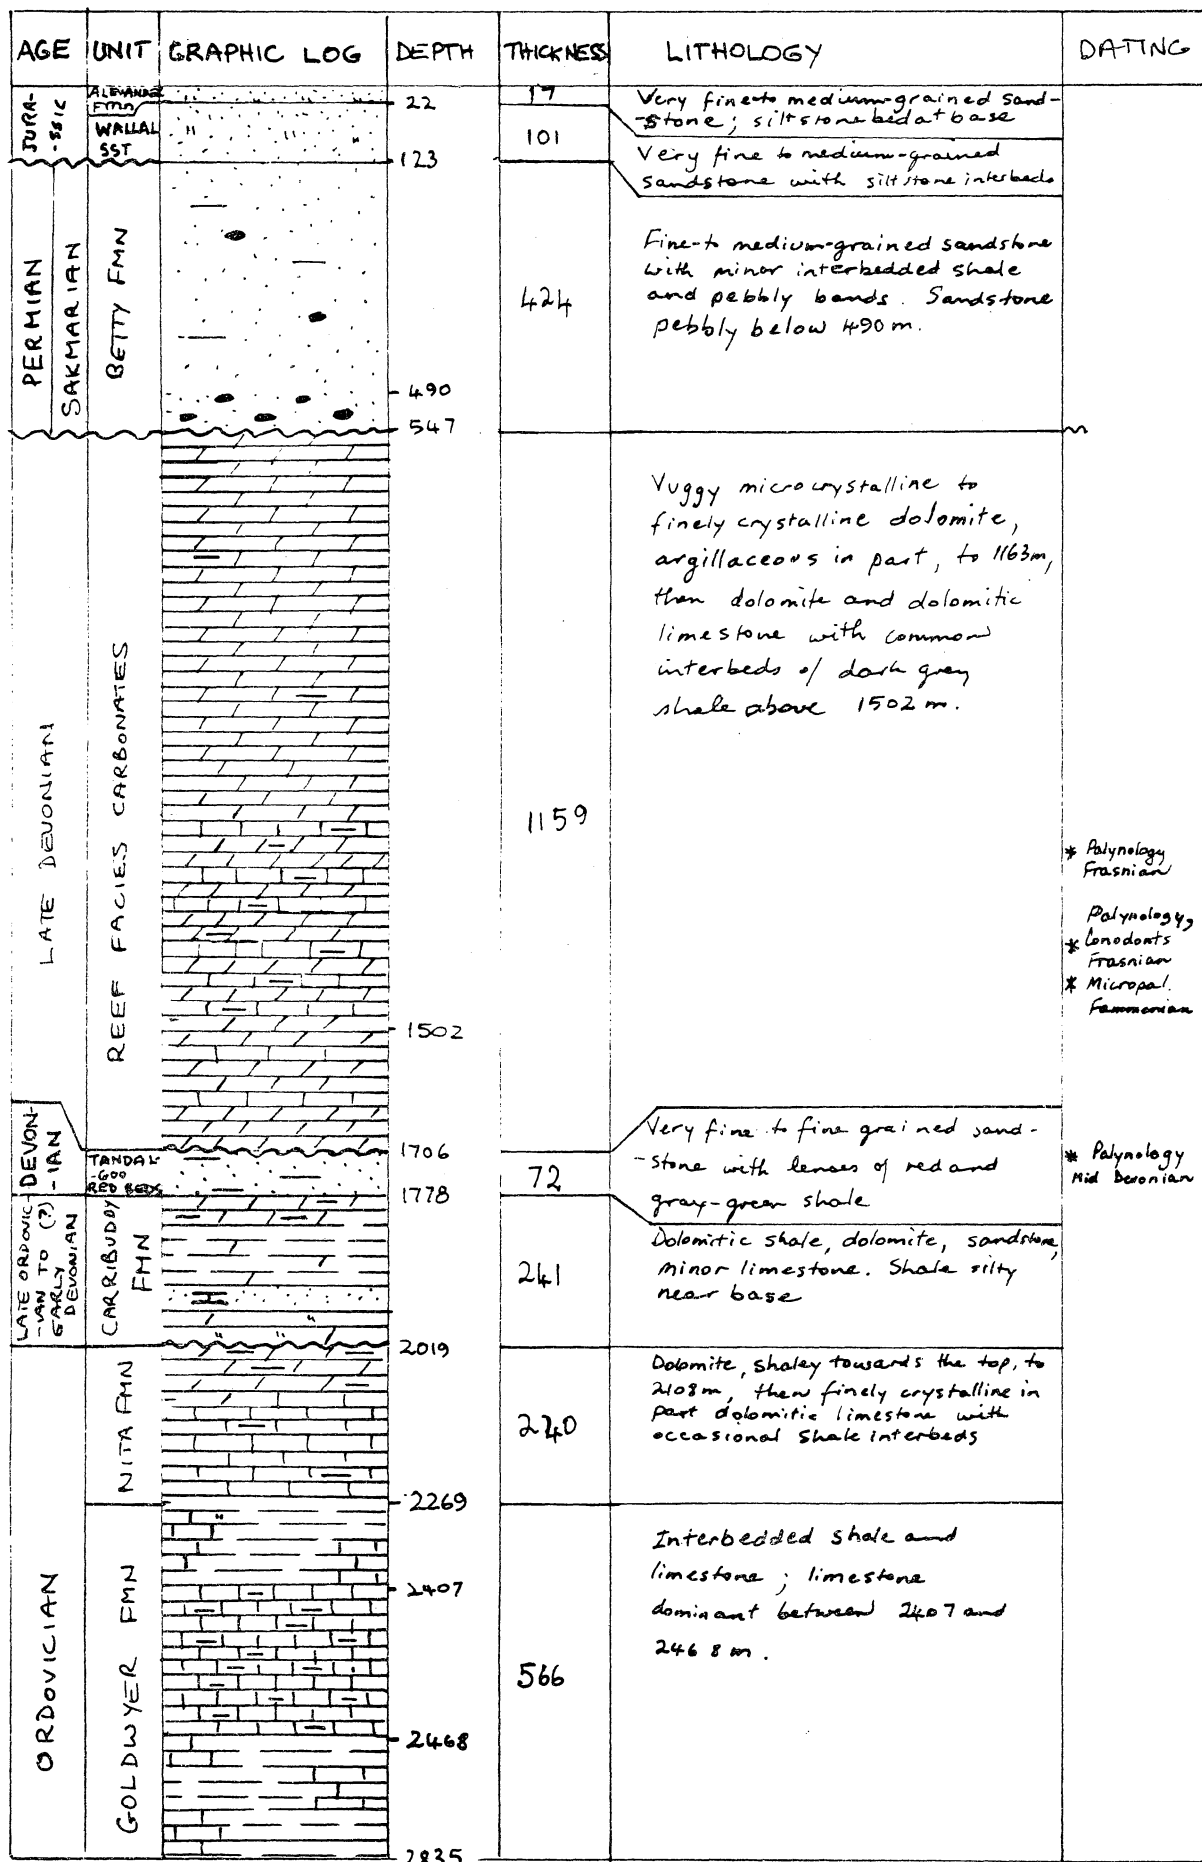 AGE UNIT GRAPHIC LOG DEPTH THICKNESS LITHOLOGY DATING
JURA-
-SSIC
ALEXANDER
FMN
22
17
Very fine to medium-grained sand-
-stone; siltstone bed at base
WALLAL
SST
123
101
Very fine to medium-grained
sandstone with siltstone interbeds
PERMIAN
SAKMARIAN
BETTY FMN
490
547
424
Fine-to medium-grained sandstone
with minor interbedded shale
and pebbly bands. Sandstone
pebbly below 490 m.
LATE DEVONIAN
REEF FACIES CARBONATES
1502
1706
1159
Vuggy microcrystalline to
finely crystalline dolomite,
argillaceous in part, to 1163m,
then dolomite and dolomitic
limestone with common
interbeds of dark grey
shale above 1502 m.
* Palynology
Frasnian
Palynology,
* Conodonts
Frasnian
* Micropal.
Fammenian
DEVON-
-IAN
TANDAL-
-GOO
RED BEDS
1778
72
Very fine to fine grained sand-
-stone with lenses of red and
gray-green shale
* Palynology
Mid Devonian
LATE ORDOVIC-
-IAN TO (?)
EARLY
DEVONIAN
CARRIBUDDY
FMN
2019
241
Dolomitic shale, dolomite, sandstone,
minor limestone. Shale silty
near base
ORDOVICIAN
NITA FMN
2269
Dolomite, shaley towards the top, to
2108m, then finely crystalline in
part dolomitic limestone with
occasional shale interbeds
GOLDWYER FMN
2407
2468
2835
566
Interbedded shale and
limestone ; limestone
dominant between 2407 and
2468 m.